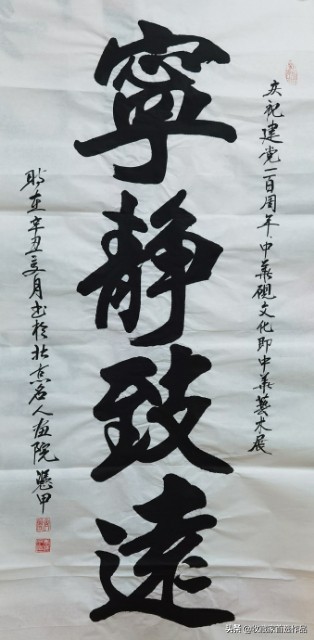 庆祝建党一百周年中华砚文化即中华藝术展
寧靜致遠
时在辛丑夏月书於北京名人画院
头条 @收藏家首选作品